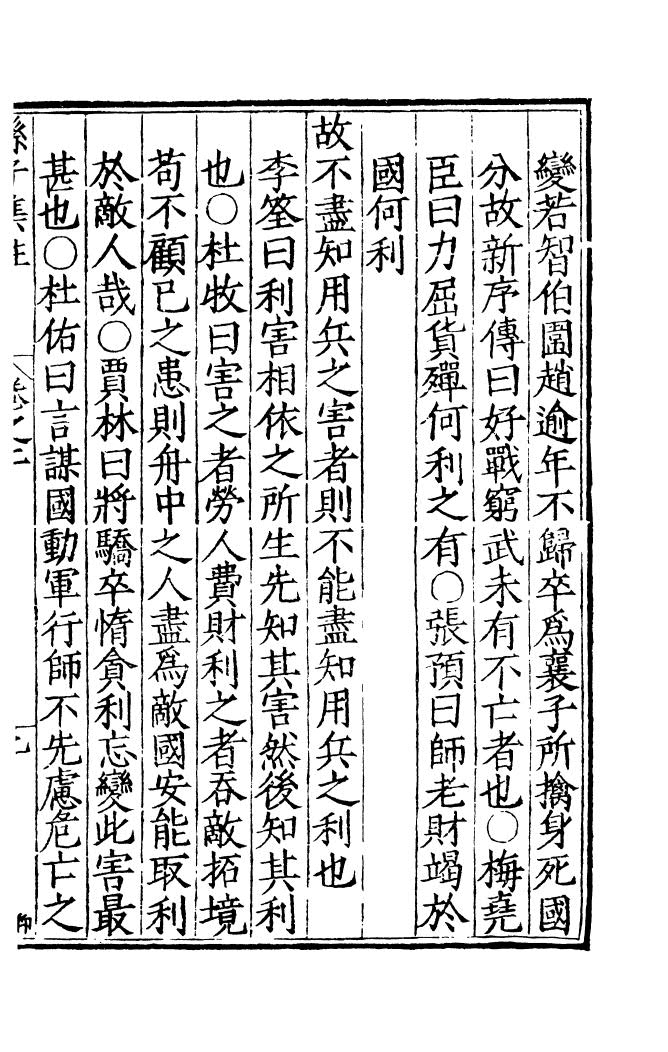 變若智伯圍趙逾年不歸卒爲襄子所擒身死國
分故新序傳曰好戰窮武未有不亡者也○梅堯
臣曰力屈貨殫何利之有○張預曰師老財竭於
國何利
故不盡知用兵之害者則不能盡知用兵之利也
李筌曰利害相依之所生先知其害然後知其利
也○杜牧曰害之者勞人費財利之者吞敵拓境
苟不顧已之患則舟中之人盡爲敵國安能取利
於敵人哉○賈林曰將驕卒惰貪利忘變此害最
甚也○杜佑曰言謀國動軍行師不先慮危亡之